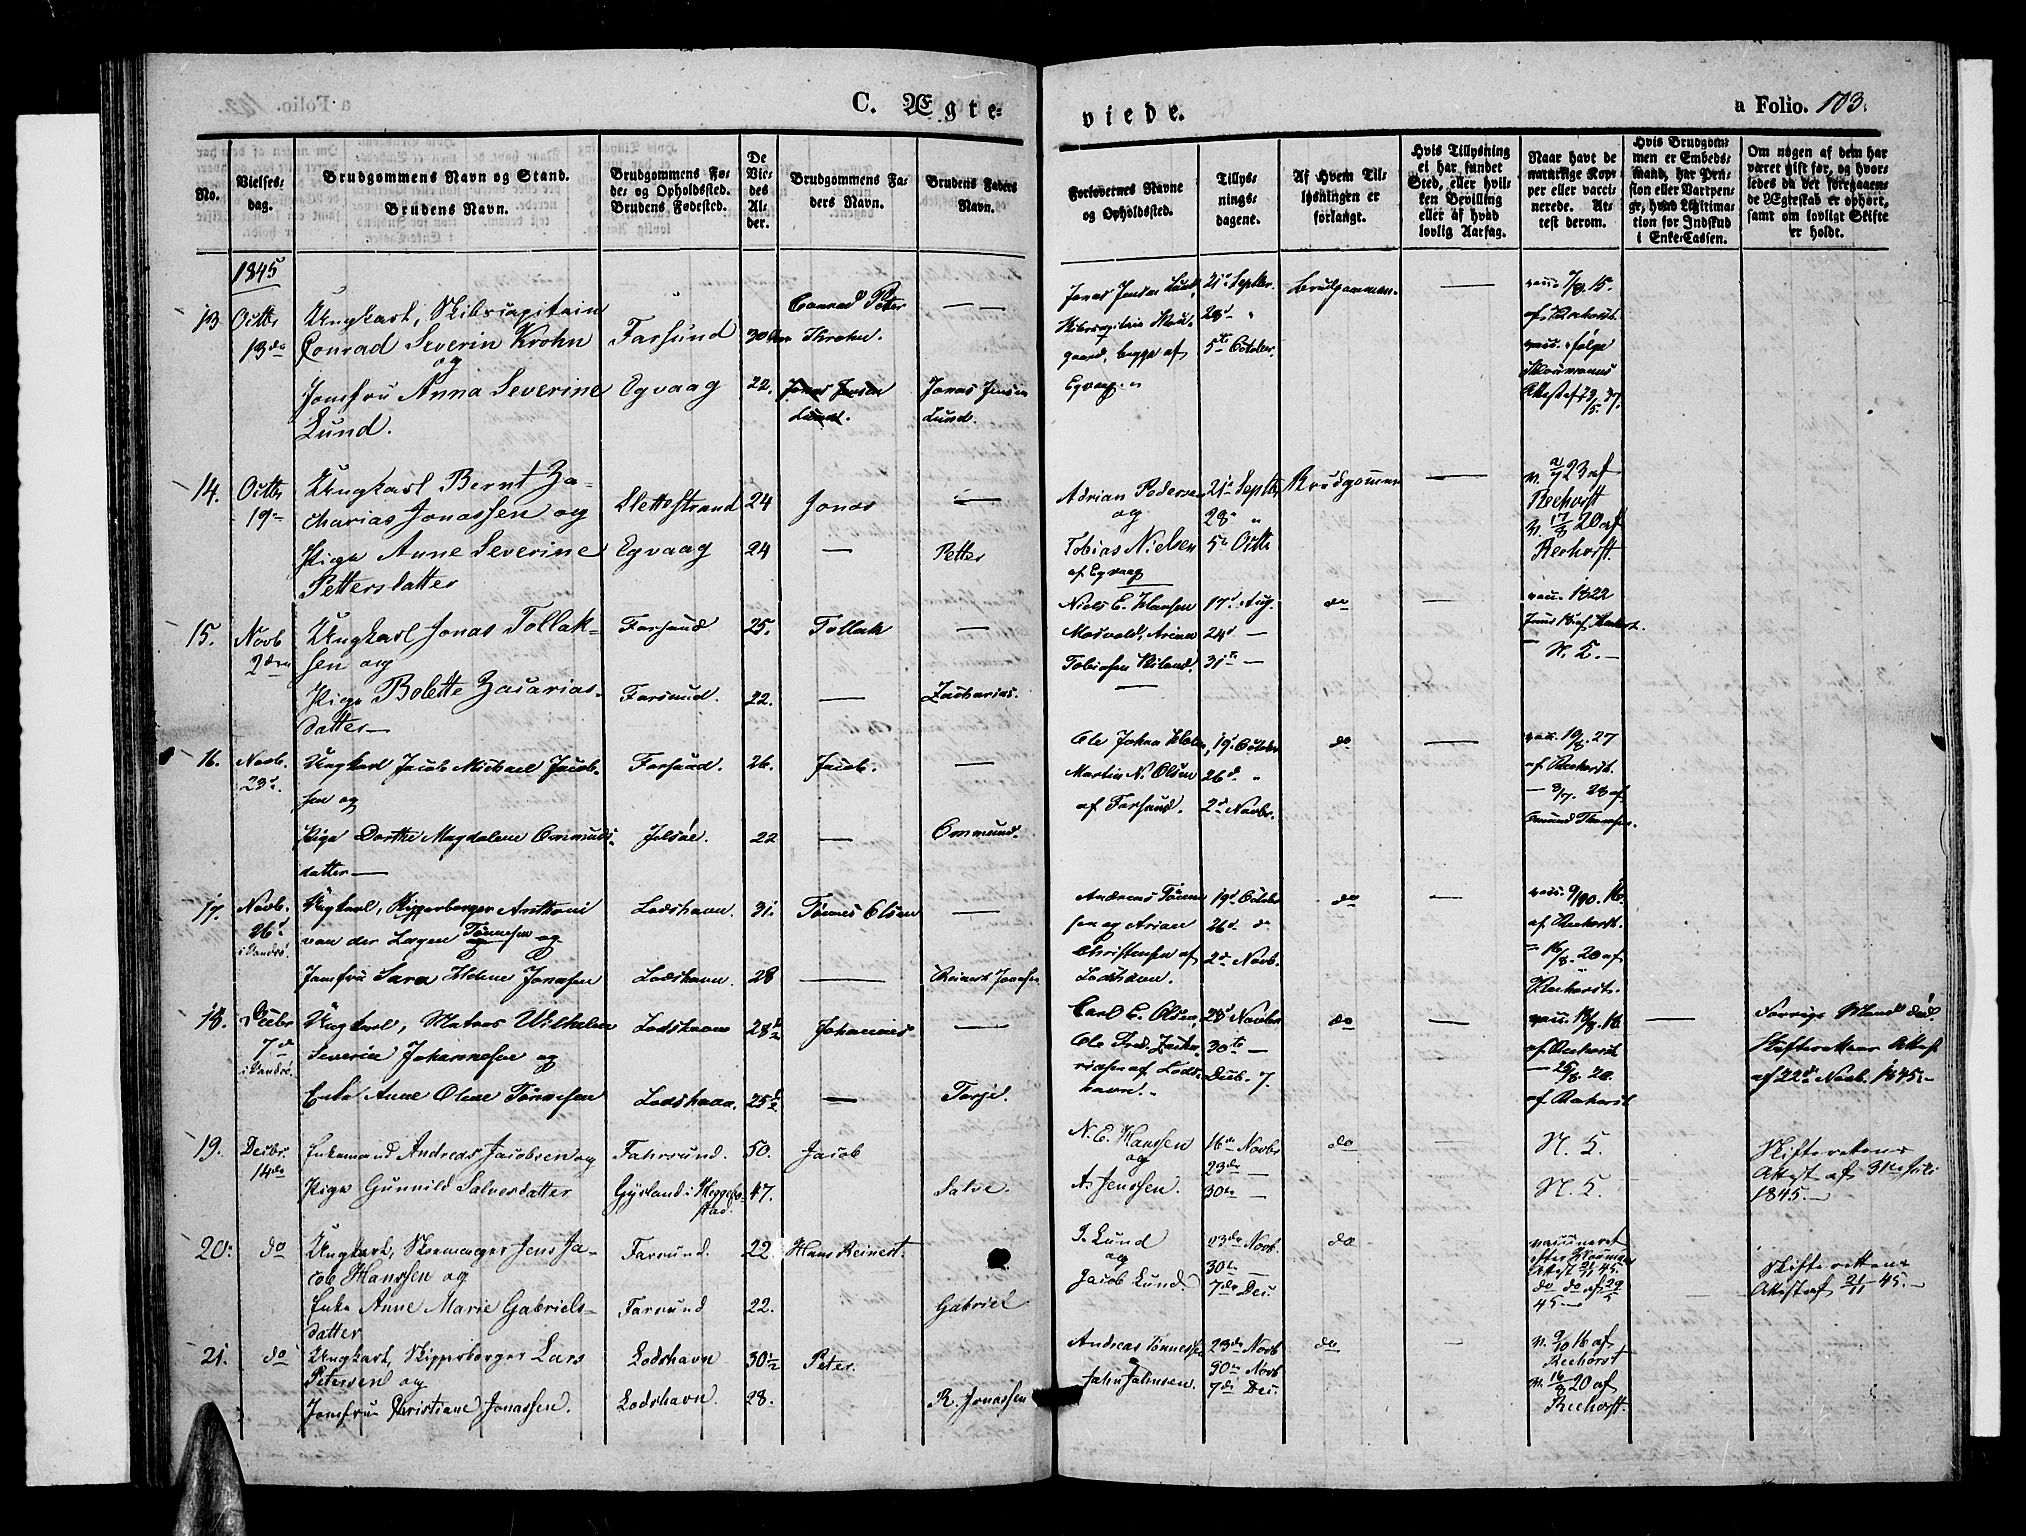 C. Ægte-
viede.
a Folio. 103.
No.
Vielses-
dag.
Brudgommens Navn og Stand.
Brudens Navn.
Brudgommens Fø-
de- og Opholdssted.
Brudens Fødested.
De
Vie-
des
Al-
der.
Brudgommens Fa-
ders Navn.
Brudens Faders
Navn.
Forlovernes Navne
og Opholdssted.
Tillys-
nings-
dagene.
Af Hvem Til-
lysningen er
forlangt.
Hvis Tillysning
ei har fundet
Sted, eller hvil-
ken Bevilling
eller af hvad
lovlig Aarsag.
Naar havt de
naturlige Kop-
per eller vacci-
nerede. At-
test derom.
Hvis Brudgom-
men er Embeds-
mand, har Pen-
sion eller Vartpen-
ge, hvad Legitima-
tion for Indskud
i Enke-Cassen.
Om nogen af dem har
været gift før, og hvor-
ledes da det foregaaen-
de Ægteskab er ophørt,
samt om lovligt Skifte
er holdt.
1845
13 Octbr 13de
Ungkarl, Skibscapitain
Conrad Severin Krohn
og
Jomfru Anna Severine
Lund.
Farsund
Egvaag
30 Aar
22.
Conrad Peter
Krohn.
Jonas Jensen
Lund.
—
Jonas Jensen
Lund.
Jonas Jensen Lund,
begge af
Egvaagen
21de Septbr.
28de "
5te October
Brudgommen.
—
vacc. 7/8. 15.
af Reehorst.
14. Octbr 19de
Ungkarl Bernt Za-
charias Jonassen og
Pige Anne Severine
Pettersdatter
Slettestrand
Egvaag
24
24
Jonas
—
—
Petter
Adrian Pedersen
og
Tobias Nielsen
af Egvaag
21de Septb.
28de "
5te Octb
Brudgommen
—
23 af
Reehorst
v. 17/8 20 af
Reehorst.
15. Novb 2den
Ungkarl Jonas Tollak-
sen og
Pige Bolette Zacarias-
datter—
Farsund
Farsund.
25.
22.
Tollak
—
—
Zacharias.
Niels E. Hansen
Tobiasen
17de Aug.
24de —
31te —
do
—
vacc. 1822
N. E. —
16. Novb. 23de.
Ungkarl Jacob Michael Jacob-
sen og
Pige Dorthe Magdalene Ommunds-
datter—
Farsund.
Jelsøe.
26.
22
Jacob.
—
—
Ommund.
Ole Johan
Martin N. Olsen
af Farsund.
19de October
26de. "
2de Novbr.
do
—
vacc. 19/8. 27
af Reehorst.
— 8/7. 28 af
17. Novb. 26de i Vandsø.
Ungkarl, Skipperborger Anthoni
van der Lagen Tønnesen og
Jomfru Sara Helene Jonassen
Lodshavn.
Lodshavn.
31.
28
Tønnes Olsen
—
—
Reinert Jonassen
Andreas Tønne-
sen og Arian
Christensen af
Lodshavn.
19de October
26de. do
2de Novb.
do
—
vacc. 9/10. 16
af Reehorst.
— 16/8. 20 af
Reehorst.
18. Decbr 7de i Vandsø.
Ungkarl, Mathias Wilhelm
Severin Johannesen og
Enke Anne Olene Tønnesen
Lodshavn
Lodshavn.
28½
25½
Johannes
—
—
Torje.
Carl E. Olsen,
Ole Fred. Zacha-
riasen af Lods-
havn.
23de Novbr
30te —
Decb. 7
do
—
vacc. 18/8. 18.
af Reehorst
— 25/8. 20.
af Reehorst
—
Forrige Mand død.
Skifterettens Attest
af 22de Novb. 1845.—
19. Decbr. 14de
Enkemand Andreas Jacobsen og
Pige Gunnild Salvesdatter
Fahrsund.
Gysland i Heggebo-
stad.
50.
47.
Jacob
Salve.
N. E. Hanssen
og
A. Jenssen.
16de Novbr
23de —
30te —
do
N. E.
N. E.
Skifterettens
Attest af 31te Juli
1845.—
20. do
Ungkarl, Jens Ja-
cob Hanssen og
Enke Anne Marie Gabriels-
datter
Farsund.
Farsund
22.
22.
Hans Reinert.
Gabriel
J. Lund
og
Jacob Lund.
23de Novb.
30te —
7de Dec.
do
vaccineret
efter
Attest 21/11 45.
do do af 29/5
45.—
Skifterettens
Attest af 21/11 45.—
21. do
Ungkarl, Skipperborger Lars
Petersen og
Jomfru Christiane Jonassen.
Lodshavn
Lodshavn.
30½
28.
Peter.
R. Jonassen
Andreas Tønnessen
Jahn Jahnsen.
23de Novb
30te Novb
7de Dec.
do
—
v. 9/10 16 af
Reehorst
v. 16/8 20 af
Reehorst.